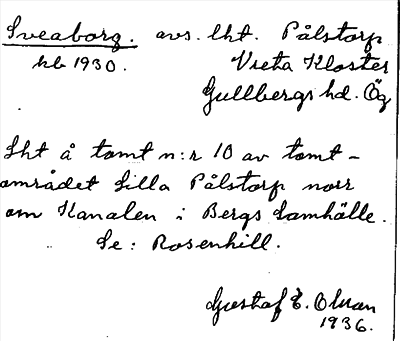 Sveaborg. avs. lht. Pålstorp
kb 1930. Vreta Kloster
Gullbergs hd. Ög
Lht å tomt n:r 10 av tomt-
området Lilla Pålstorp norr
om Kanalen i Bergs samhälle.
Se: Rosenhill.
Gustaf E. Olsson
1936.